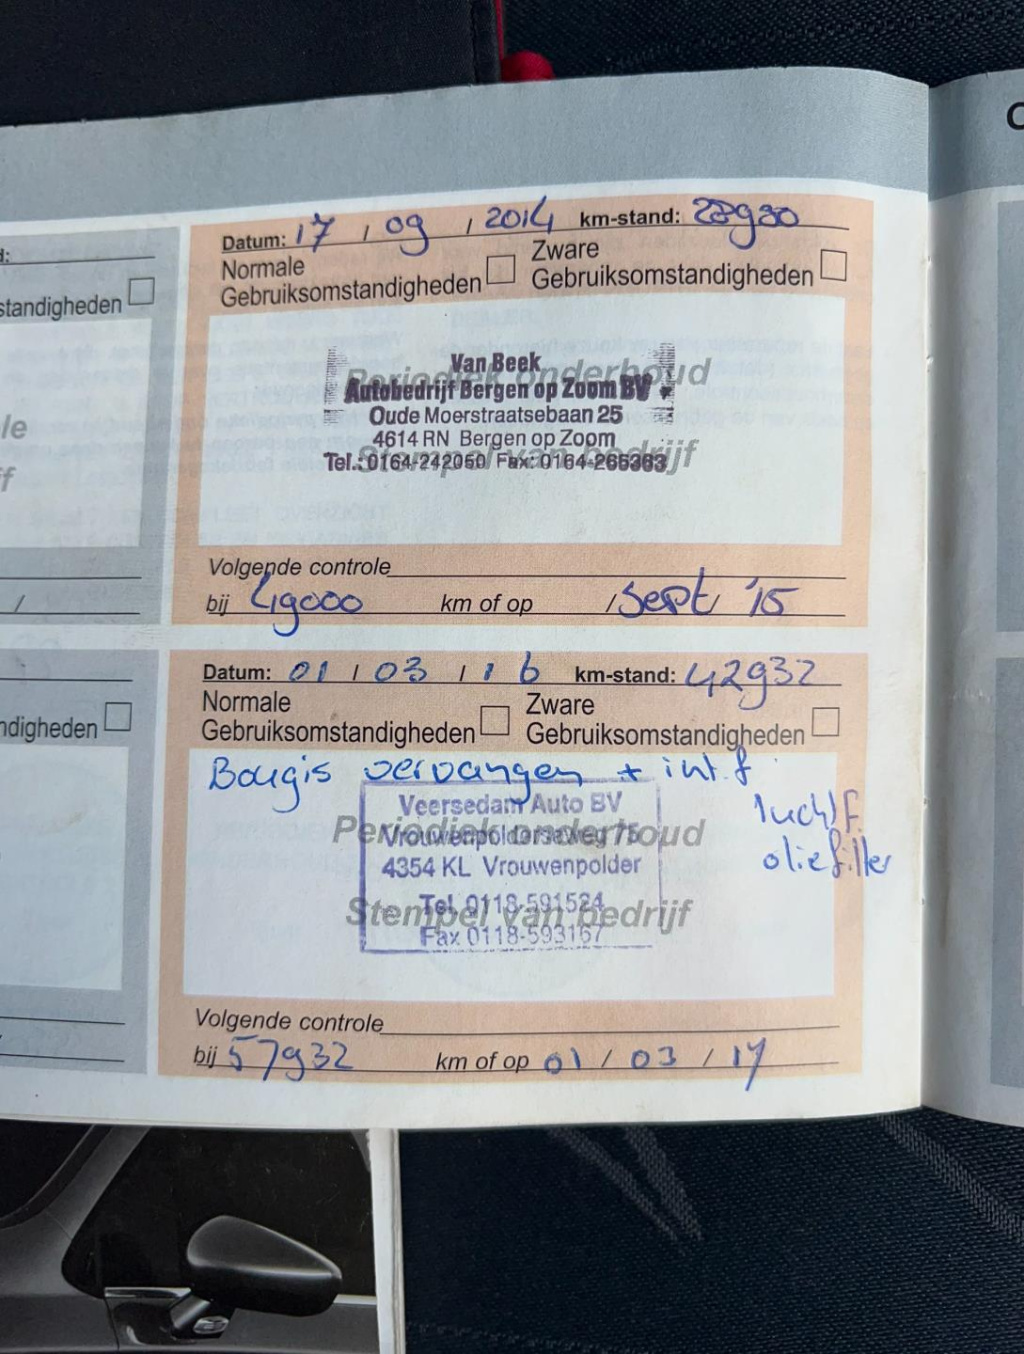 C
d:
standigheden
le
f
/
ndigheden
Datum: 17 / 09 / 2014 km-stand: 28980
Normale
Gebruiksomstandigheden
Zware
Gebruiksomstandigheden
Periodiek onderhoud
Stempel van bedrijf
Van Beek
Autobedrijf Bergen op Zoom BV
Oude Moerstraatsebaan 25
4614 RN Bergen op Zoom
Tel.: 0164-242050 Fax: 0164-265363
Volgende controle
bij 49000 km of op / Sept / '15
Datum: 01 / 03 / 16 km-stand: 42932
Normale
Gebruiksomstandigheden
Zware
Gebruiksomstandigheden
Bougis vervangen + int.f
luchtf.
oliefilter
Periodiek onderhoud
Stempel van bedrijf
Veersedam Auto BV
Vrouwenpolderseweg 75
4354 KL Vrouwenpolder
Tel. 0118-591524
Fax 0118-593167
Volgende controle
bij 57932 km of op 01 / 03 / 17